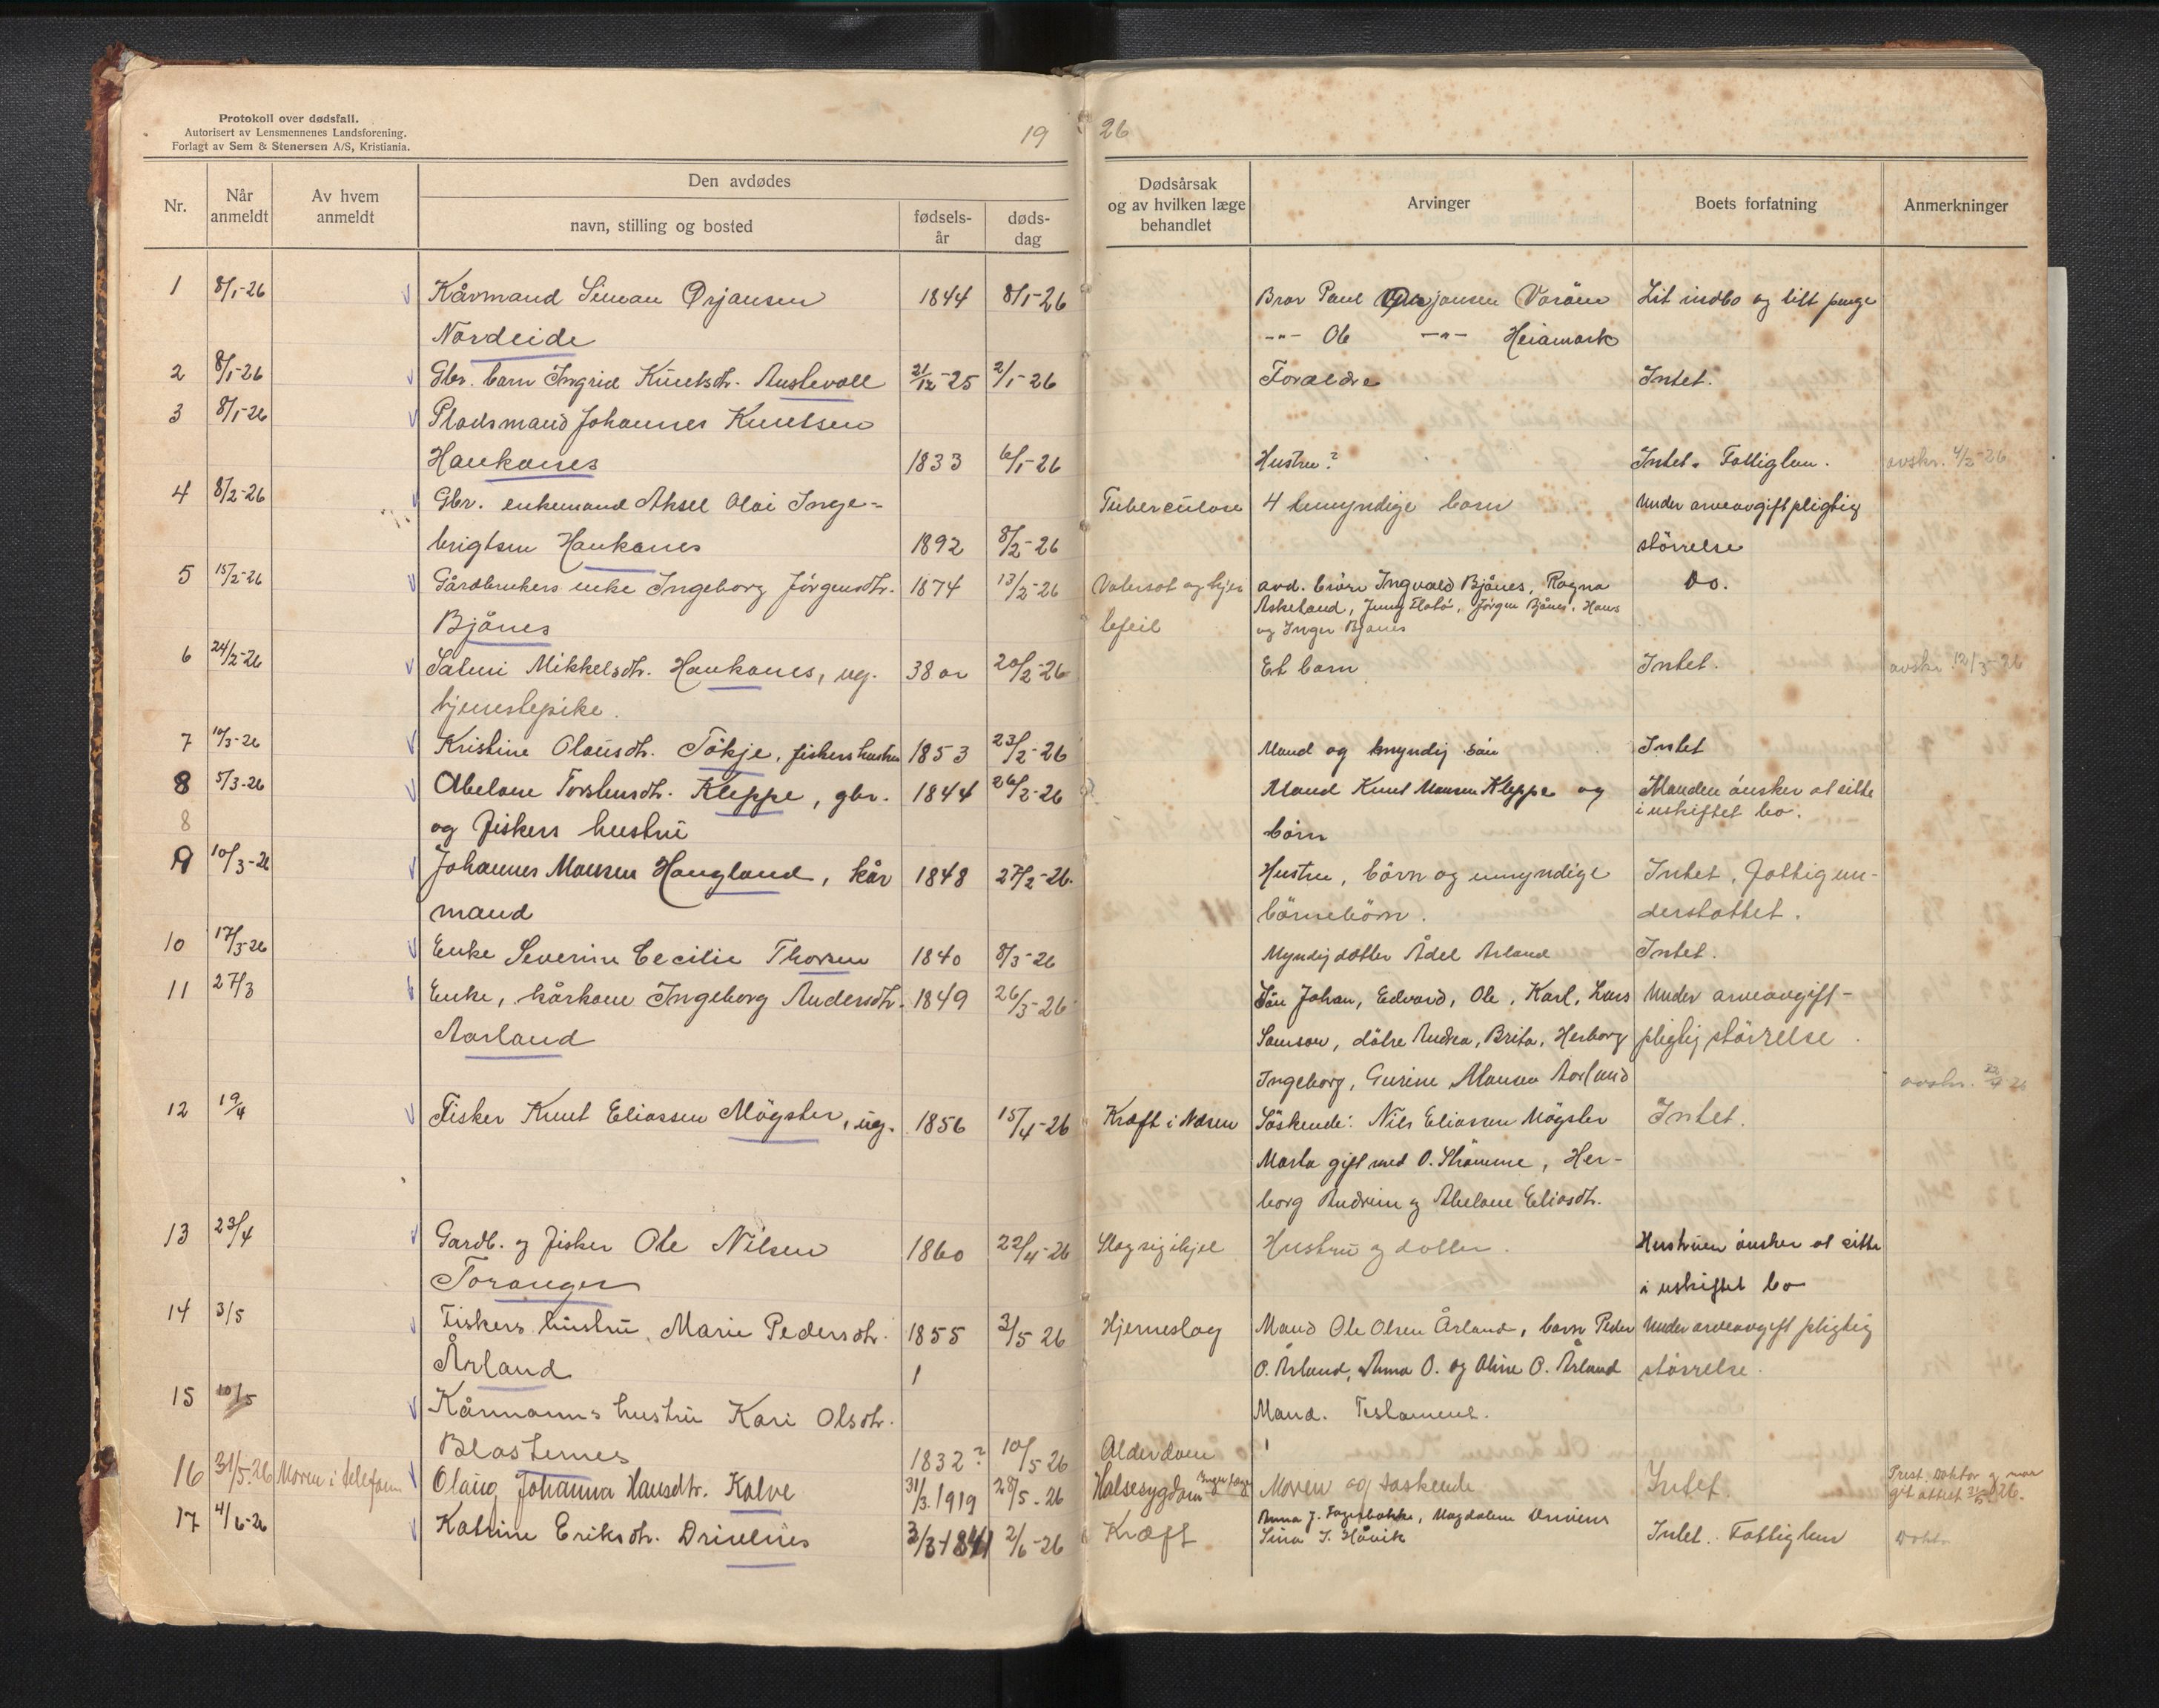 Protokoll over dødsfall.
Autorisert av Lensmennenes Landsforening.
Forlagt av Sem & Stenersen A/S, Kristiania.
19 26
Nr. Når anmeldt Av hvem anmeldt Den avdødes navn, stilling og bosted fødselsår dødsdag Dødsårsak og av hvilken læge behandlet Arvinger Boets forfatning Anmerkninger
1 8/1-26 Kårmand Simon Ørjansen 1844 8/1-26 Bror Paul Ørjansen Vorøen Lit indbo og litt penge
Nordeide -"- Ole -"- Heiamark
2 8/1-26 Gbr. barn Ingrid Knutsdtr. Austevoll 21/12-25 2/1-26 Forældre Intet.
3 8/1-26 Pladsmand Johannes Knutsen
Haukanes 1833 6/1-26 Hustru? Intet. Fattiglem. avskr. 4/2-26
4 8/2-26 Gbr. enkemand Aksel Olai Inge- Tuberculose 4 umyndige barn Under arveavgiftpligtig
brigtsen Haukanes 1892 8/2-26 størrelse
5 15/2-26 Gårdbrukers enke Ingeborg Jørgensdtr. 1874 13/2-26 Vatersot og hjer avd. brøre Ingvald Bjånes, Ragna Do.
Askeland, Jenny Flatø, Jørgen Bjånes, Hans
Bjånes tefeil og Inger Bjånes
6 24/2-26 Salmi Mikkelsdtr. Haukanes, ug. 38 år 20/2-26 Et barn Intet. avskr. 12/3-26
tjenestepike.
7 10/3-26 Kristine Olausdtr. Tökje, fiskers hustru 1853 23/2-26 Mand og myndig søn Intet
8 5/3-26 Abelone Torstensdtr. Kleppe, gbr. 1844 26/2-26 Mand Knut Monsen Kleppe og Manden ønsker at sitte
i uskiftet bo.
8 og fiskers hustru børn
9 10/3-26 Johannes Monsen Haugland, kår 1848 27/2-26. Hustru, børn og umyndige Intet, fattigun-
mand børnebørn. derstøttet.
10 17/3-26 Enke Severine Cecilie Thorsen 1840 8/3-26 Myndig datter Ådel Årland Intet.
11 27/3 Enke, kårkone Ingeborg Andersdtr. 1849 26/3-26 Søn Johan, Edvard, Ole, Karl, Lars Under arveavgift-
Aarland Samson, døtre Andrea, Brita, Herborg pligtig størrelse.
Ingeborg, Gurine Monsen Aarland avskr. 22/4 26
12 19/4 Fisker Knut Eliassen Møgster, ug. 1856 15/4-26 Kræft i Næsen Søskende: Nils Eliassen Møgster Intet.
Marta gift med O. Strømme, Her-
borg Andrine og Abelone Eliasdtr.
13 23/4 Gardb. og fisker Ole Nilsen 1860 22/4-26 Slog sig ihjel Hustru og datter. Hustruen ønsker at sitte
Toranger i uskiftet bo
14 3/5 Fiskers hustru, Marie Pedersdtr. 1855 3/5 26 Hjerneslag Mand Ole Olsen Årland, barn Peder Under arveavgiftpligtig
Årland O. Årland, Anna O. og Oline O. Årland størrelse.
15 10/5 Kårmanns hustru Kari Olsdtr. Mand. Testament.
Blostenes 1832? 10/5 26 Alderdom
16 31/5.26 Moren i telefonen Olaug Johanna Hansdtr. Kalve 31/3.1919 28/5-26 Halsesygdom Ingen læge Moren og søskende Intet. Prest, Doktor og mor
git attest 31/5 26.
17 4/6-26 Katrine Eriksdtr. Drivenes 3/3-1841 2/6-26 Kræft Anna J. Fagerbakke, Magdalene Drivenes
Sina J. Håvik Intet. Fattiglem Doktor